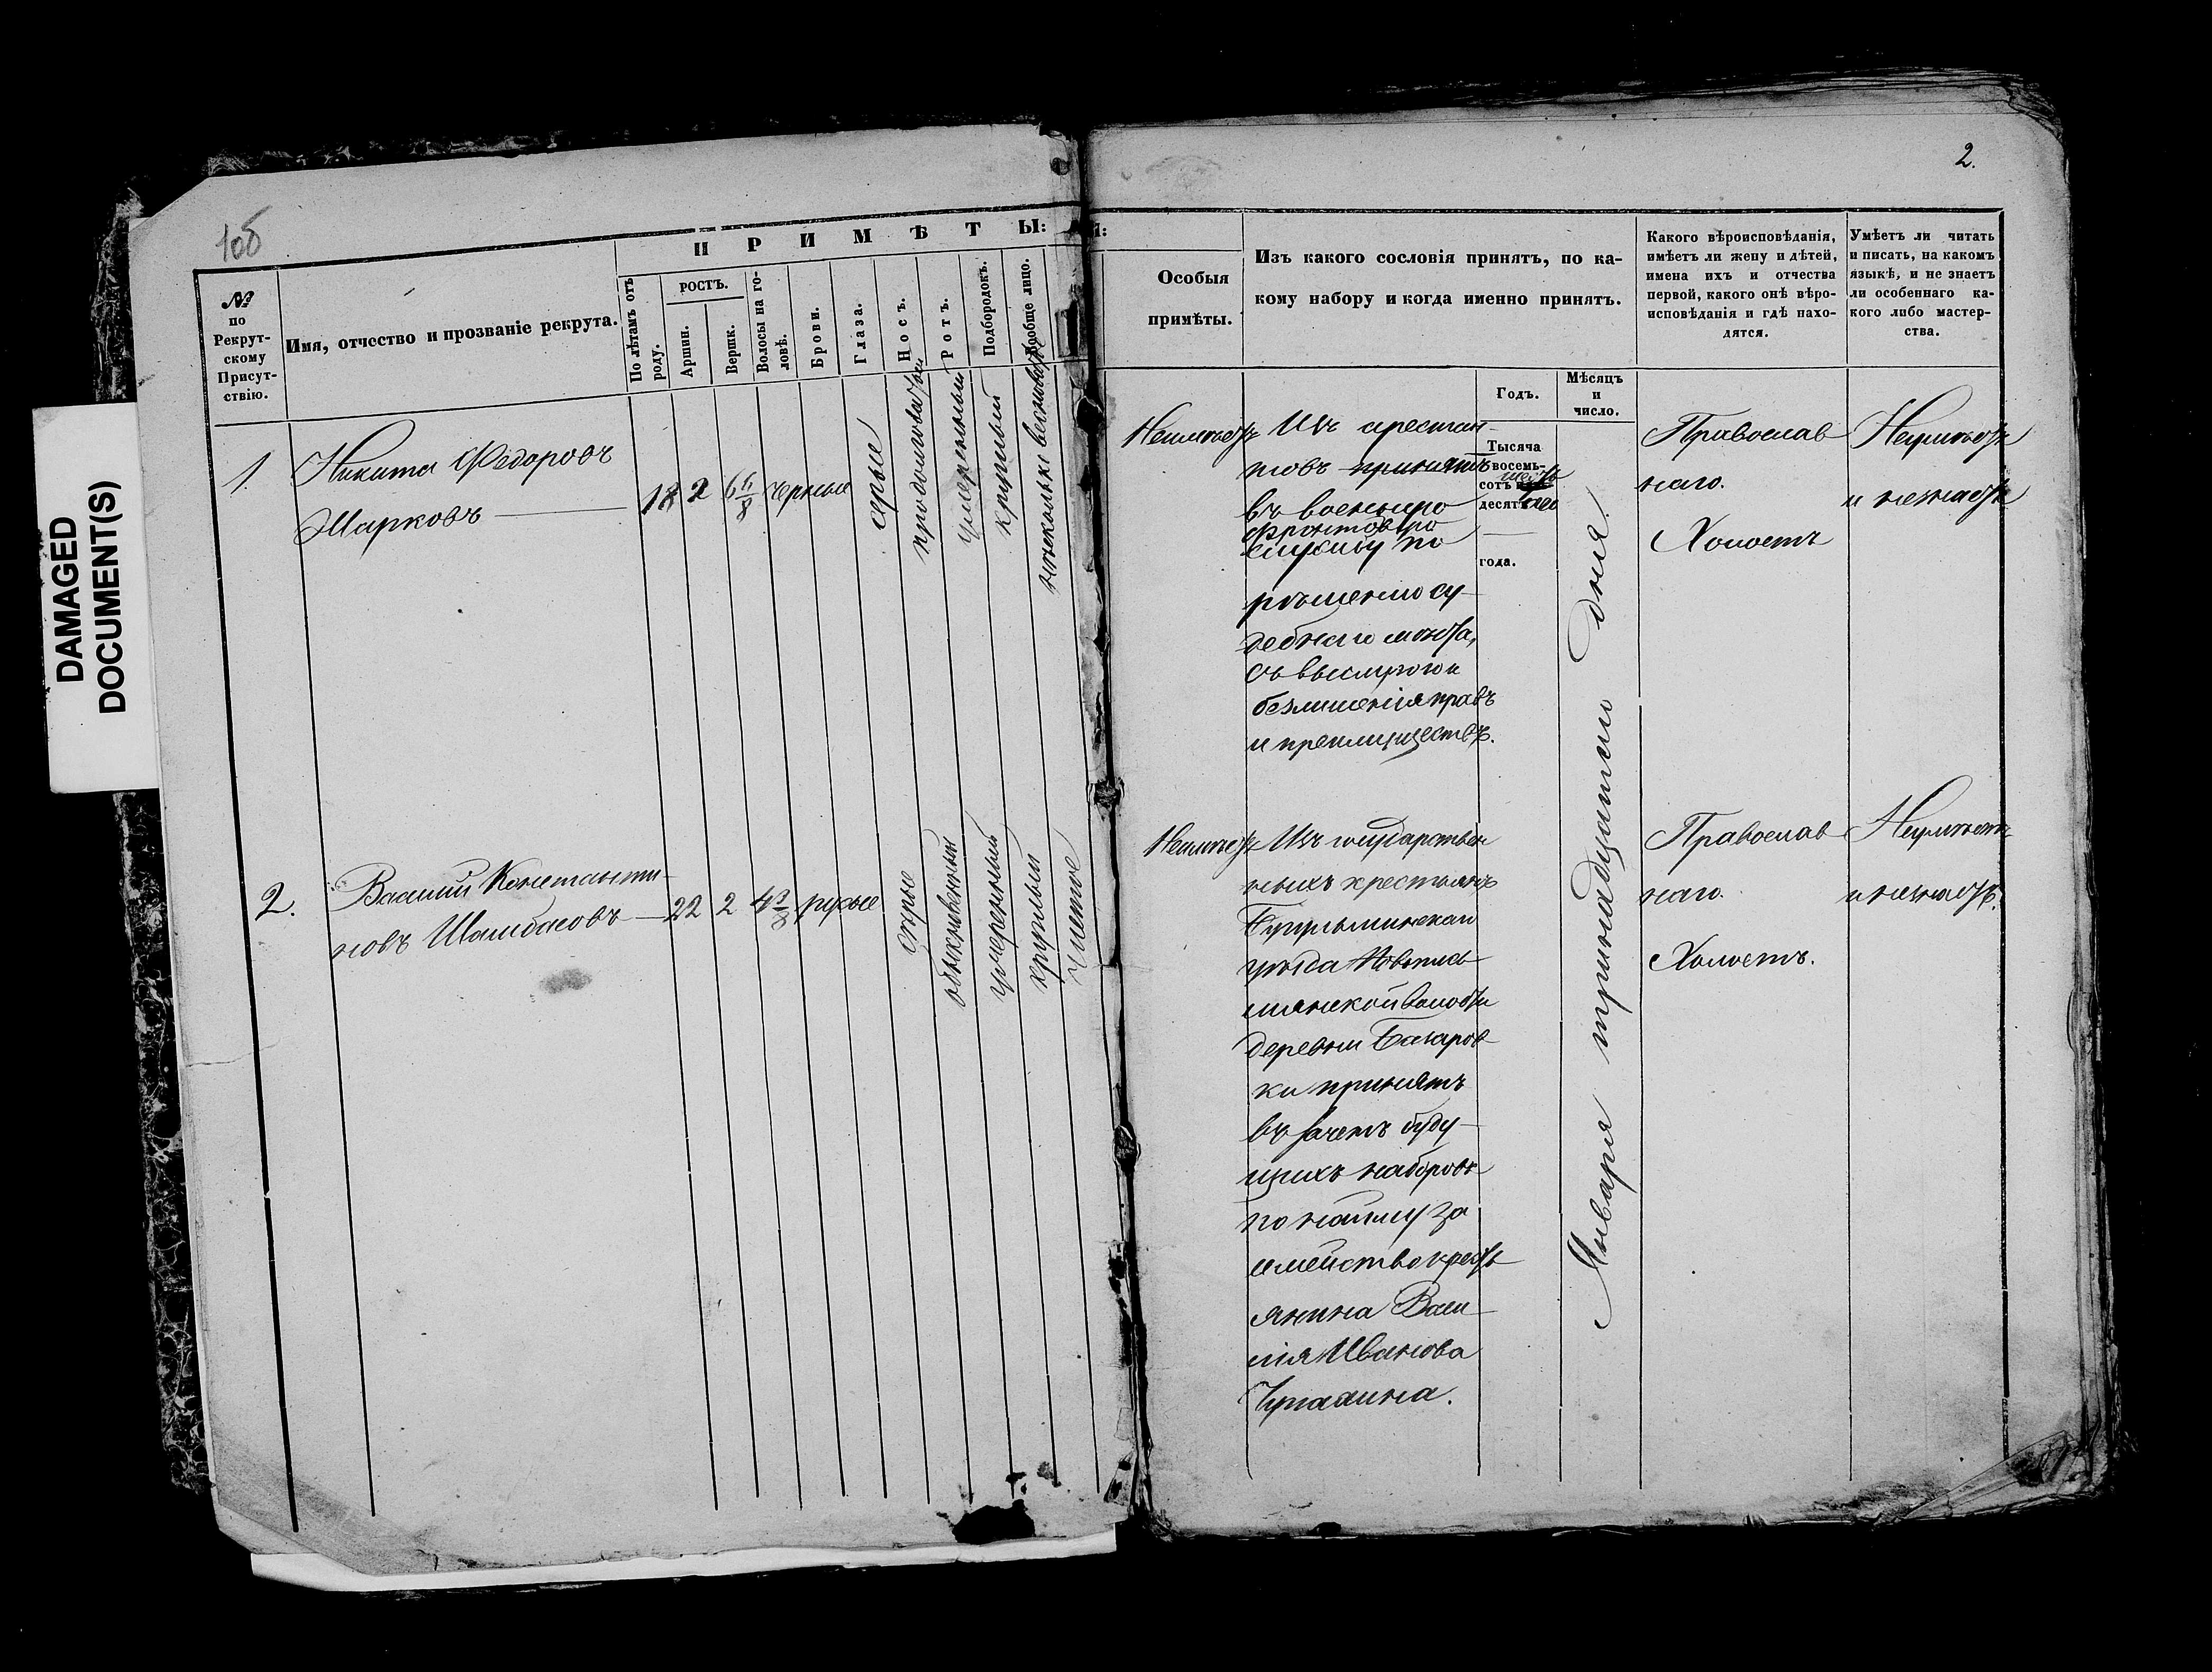 DAMAGED
DOCUMENT(S)
1об
2.
ПРИМѢТЫ:
№
по
Рекрут-
скому
Присут-
ствію.
Имя, отчество и прозваніе рекрута.
По лѣтамъ отъ
роду.
РОСТЪ.
Аршин.
Вершк.
Волосы на го-
ловѣ.
Брови.
Глаза.
Носъ.
Ротъ.
Подбородокъ.
Вообще лицо.
Особыя
примѣты.
Изъ какого сословія принятъ, по ка-
кому набору и когда именно принятъ.
Годъ.
Мѣсяцъ
и
число.
Какого вѣроисповѣданія,
имѣетъ ли жену и дѣтей,
имена ихъ и отчества
первой, какого онѣ вѣро-
исповѣданія и гдѣ нахо-
дятся.
Умѣетъ ли читать
и писать, на какомъ
языкѣ, и не знаетъ
ли особеннаго ка-
кого либо мастер-
ства.
1.
Никита Федоровъ
Марковъ
18 2 6 6/8 черные
серые
продолговатый
умеренный
круглый
несколько весноват
Неимѣетъ
Изъ арестан-
товъ принятъ
въ военную
фронтовую
службу по
рѣшенію су-
дебнаго места,
съ выслугою и
безлишенія правъ
и преимуществъ.
Тысяча
восемь-
сотъ шесть
десят
года.
Января тринадцатаго дня.
Православ
наго.
Холостъ
Неумѣетъ
и незнаетъ
2.
Василий Константи-
новъ
22 2 4 3/8 русые
серые
обыкновенный
умеренный
круглый
чистое
Неимѣетъ
Изъ государствен
ныхъ крестьянъ
Бугульминскаго
уѣзда Новописъ-
мянской волости
деревни
ки принятъ
въ зачетъ буду-
щихъ наборовъ
по найму за
семейство кресть
янина Васи-
лія Иванова
Православ
наго.
Холостъ.
Неумѣетъ
и незнаетъ.